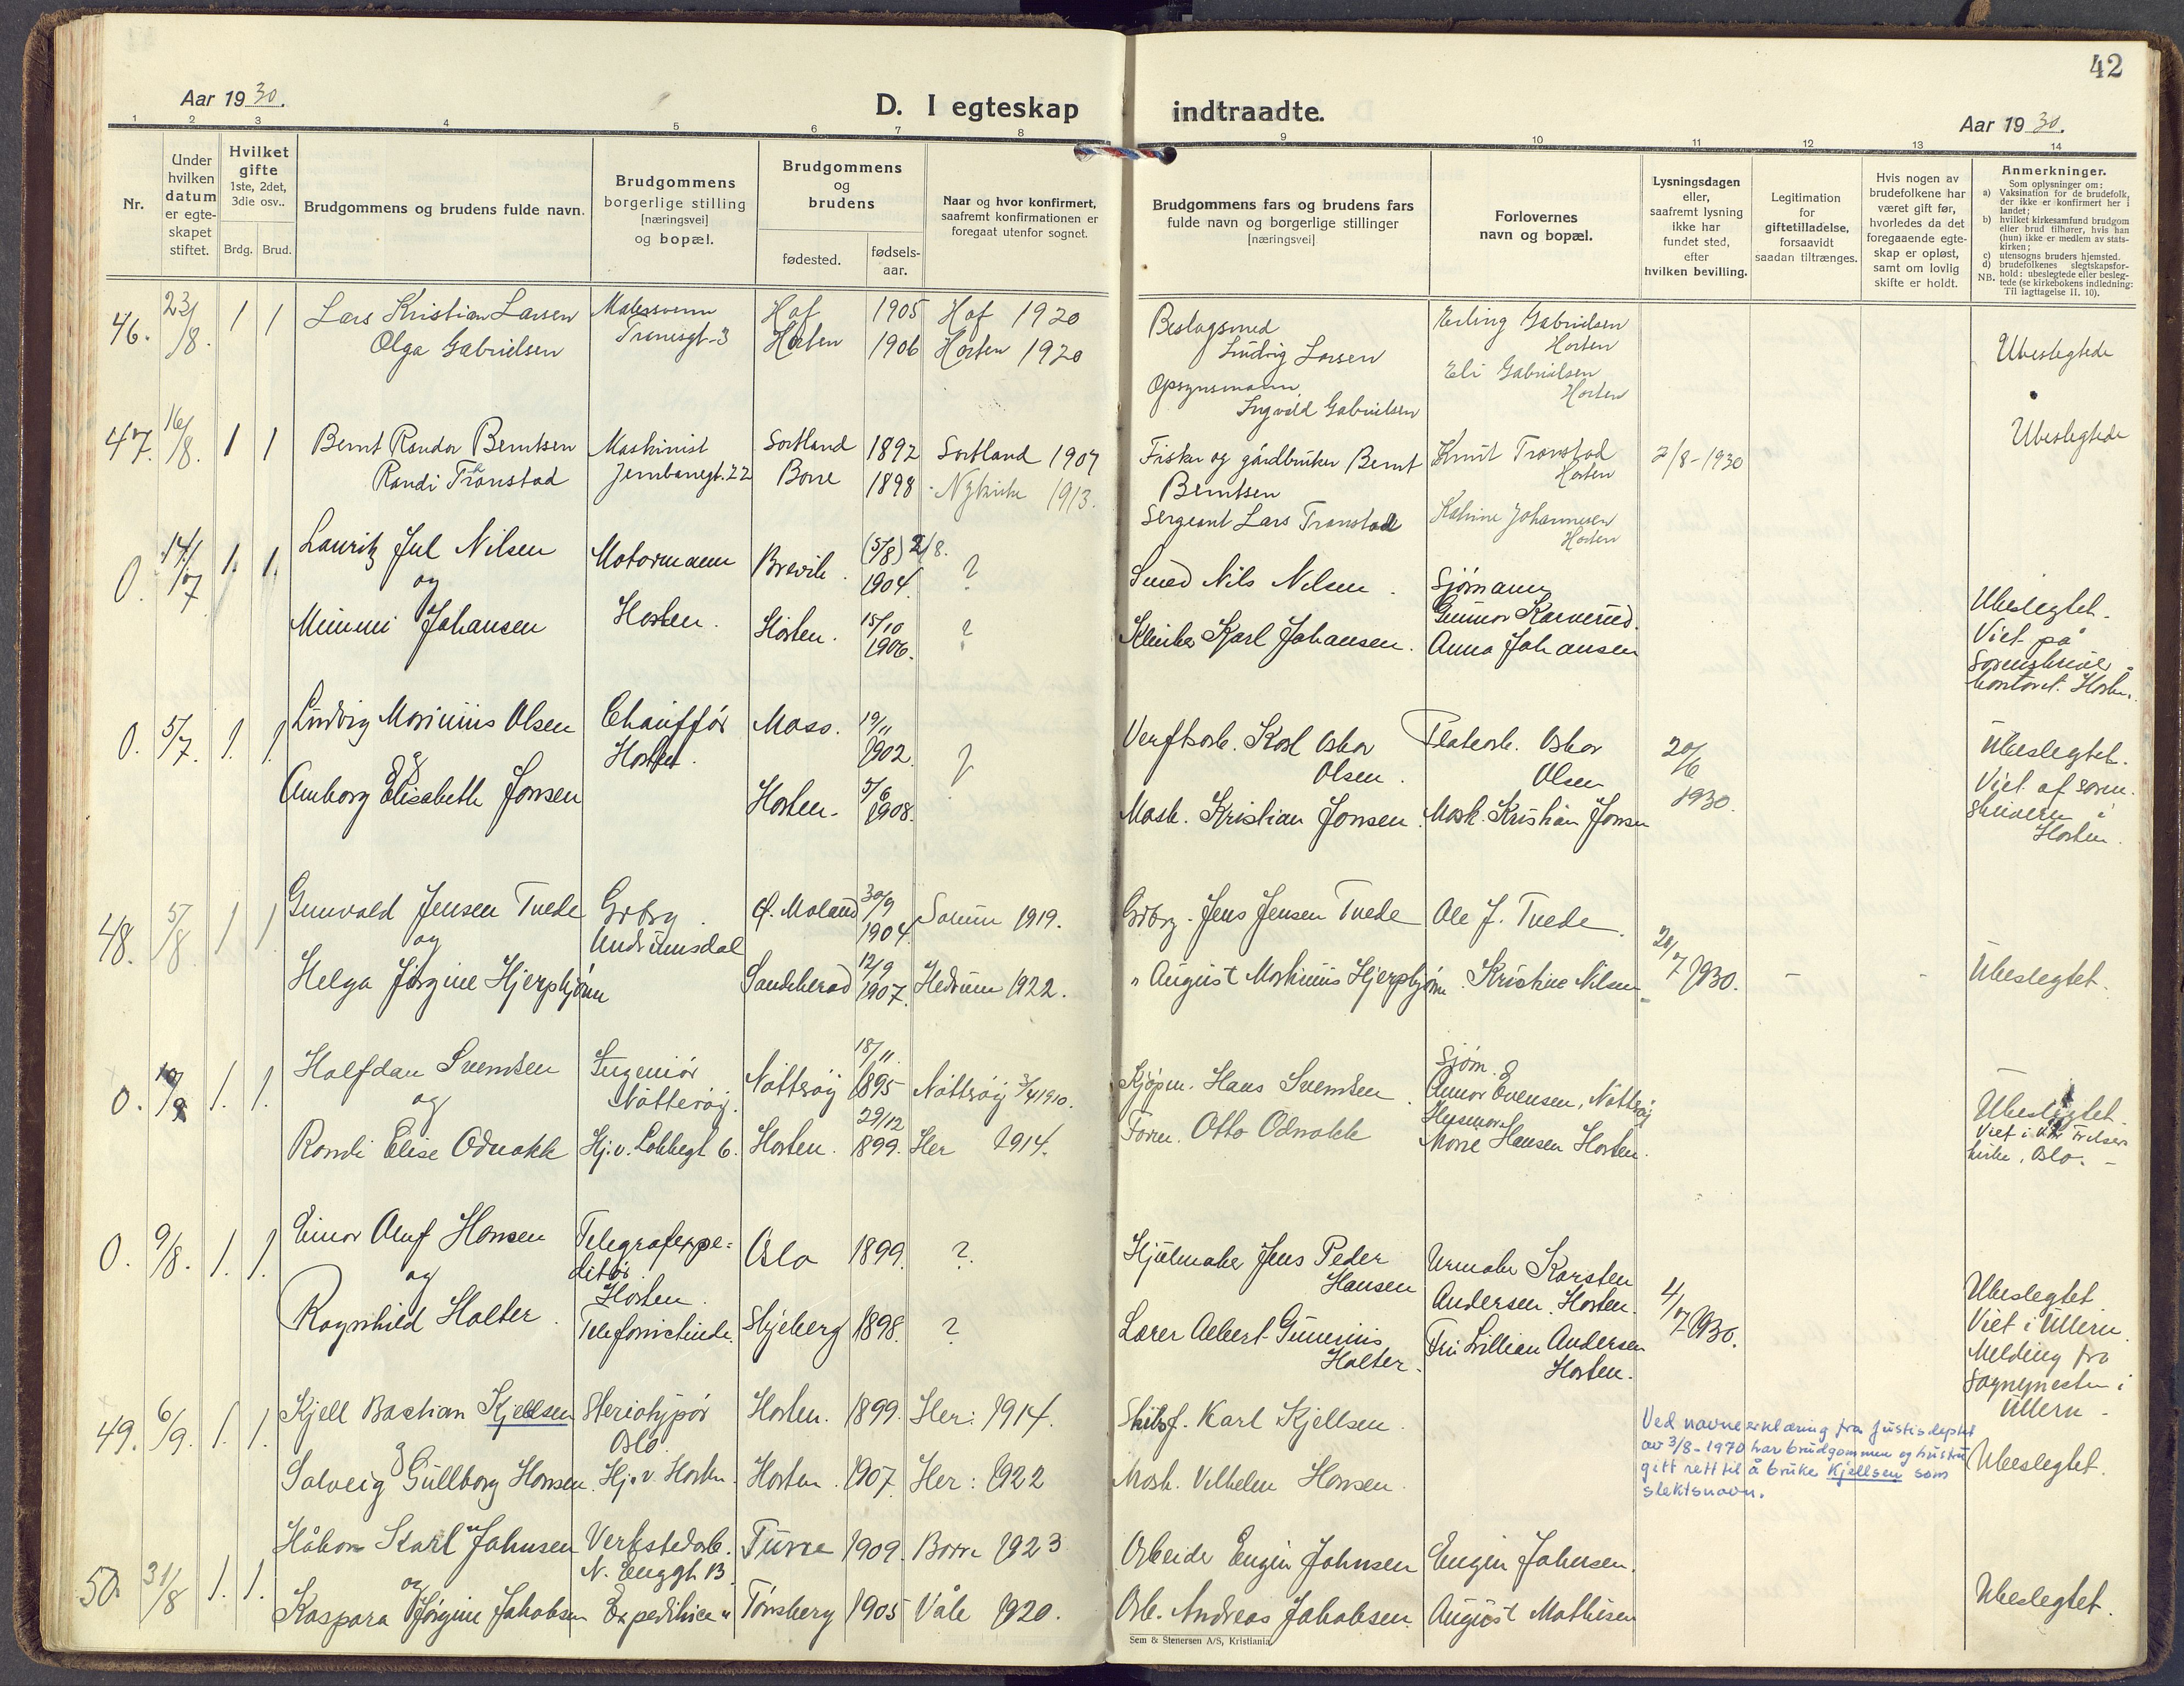 42
Aar 1930.
D. I egteskap indtraadte.
Aar 1930.
1 2 3 4 5 6 7 8 9 10 11 12 13 14
Nr.
Under hvilken datum er egteskapet stiftet.
Hvilket gifte 1ste, 2det, 3die osv..
Brdg. Brud.
Brudgommens og brudens fulde navn.
Brudgommens borgerlige stilling [næringsvei] og bopæl.
Brudgommens og brudens
fødested.
fødselsaar.
Naar og hvor konfirmert, saafremt konfirmationen er foregaat utenfor sognet.
Brudgommens fars og brudens fars fulde navn og borgerlige stillinger [næringsvei]
Forlovernes navn og bopæl.
Lysningsdagen eller, saafremt lysning ikke har fundet sted, efter hvilken bevilling.
Legitimation for giftetilladelse, forsaavidt saadan tiltrænges.
Hvis nogen av brudefolkene har været gift før, hvorledes da det foregaaende egteskap er opløst, samt om lovlig skifte er holdt.
Anmerkninger.
Som oplysninger om:
a) Vaksination for de brudefolk, der ikke er konfirmert her i landet;
b) hvilket kirkesamfund brudgom eller brud tilhører, hvis han (hun) ikke er medlem av statskirken;
c) utensogns bruders hjemsted.
d) brudefolkenes slegtskapsforhold: ubeslegtede eller beslegtede (se kirkebokens indledning: Til Iagttagelse II. 10).
NB.
46. 23/8. 1 1 Lars Kristian Larsen Malersvenn Hof 1905 Hof 1920 Beslagsmed Erling Gabrielsen
Olga Gabrielsen Tranesgt. 3 Horten 1906 Horten 1920 Ludvig Larsen Horten Ubeslegtede
Opsynsmann Eli Gabrielsen
Ingvald Gabrielsen Horten
47. 16/8. 1 1 Bernt Randor Berntsen Maskinist Sortland 1892 Sortland 1907 Fisker og gårdbruker Bernt Knut Tronstad 2/8-1930 Ubeslegtede
Randi Tronstad Jernbanegt. 22 Borre 1898 Nykirke 1913. Berntsen Horten
Sergeant Lars Tronstad Katrine Johannesen
Horten
0. 14/7 1. 1. Lauritz Jul Nilsen Motormann Brevik. (5/8) 2/8. 1904. ? Smed Nils Nilsen. Sjømann
og Horten. Gunnar Karnerud.
Mimmi Johansen Horten. 15/10 1906. ? Klinker Karl Johansen. Anna Johansen
Ubeslegtet.
Viet på
Sorenskriver
kontoret. Horten.
0. 5/7. 1. 1. Ludvig Marinius Olsen Chauffør Moss. 19/11 1902. ? Verftsarb. Karl Oskar Platearb. Oskar 20/6 1930.
og Horten. Olsen. Olsen
Amborg Elisabeth Jonsen Horten. 5/6 1908. Mask. Kristian Jonsen. Mask. Kristian Jonsen
Ubeslegtet.
Viet af soren-
skriveren i
Horten.
48. 5/8 1 1 Gunvald Jensen Tvede Grbrg. Ø. Moland 30/9 1904. Solum 1919. Grbrg. Jens Jensen Tvede Ole J. Tvede.
og Undrumsdal
Helga Jørgine Hjerpbjønn Sandeherad 12/9 1907. Hedrum 1922. " August Markinius Hjerpbjønn. Kristine Nilsen 20/7 1930. - - Ubeslegtet.
0. 10/8 1. 1. Halfdan Svendsen Ingeniør Nøtterøy 18/11 1895 Nøtterøy 3/4 1910. Kjøpm. Hans Svendsen. Sjøm.
og Nøtterøy. Annar Evensen, Nøtterøy
Randi Elise Odnakk Hj. v. Løkkegt 6. Horten. 29/12 1899. Her 1914. Form. Otto Odnakk Husmor
Marie Hansen Horten.
Ubeslegtet.
Viet i Vår Frelsers
kirke, Oslo. -
0. 9/8. 1. 1. Einar Oluf Hansen Telegrafekspe- Oslo 1899. ? Hjulmaker Jens Peder Urmaker Karsten
og ditør. Hansen Andersen. Horten. 4/7 1930.
Horten.
Ragnhild Holter. Telefonistinde. Skjeberg 1898. ? Lærer Albert Gunerius Frk Lillian Andersen
Holter. Horten.
Ubeslegtet
Viet i Ullern.
Melding fra
sognepresten i
Ullern -
49. 6/9. 1. 1. Kjell Bastian Kjellsen Steriotypør Horten. 1899. Her: 1914. Skibsf. Karl Kjellsen.
og Oslo.
Solveig Gullborg Hansen. Hj. v. Horten. Horten. 1907. Her: 1922 Mask. Vilhelm Hansen. Ubeslegtet.
Ved navneerklæring fra Justisdeptet
av 3/8-1970 har brudgommen og hustru
gitt rett til å bruke Kjellsen som
slektsnavn.
50. 31/8 1. 1. Håkon Karl Johnsen Verkstedarb. Furre 1909. Borre 1923 Arbeider Eugin Johnsen Eugin Johnsen.
og N. Enggt. 13.
Kaspara Jørgine Jakobsen Expeditrice " Tønsberg 1905 Våle 1920. Arb. Andreas Jakobsen. August Mathisen Ubeslegtet.
Sem & Stenersen A/S, Kristiania